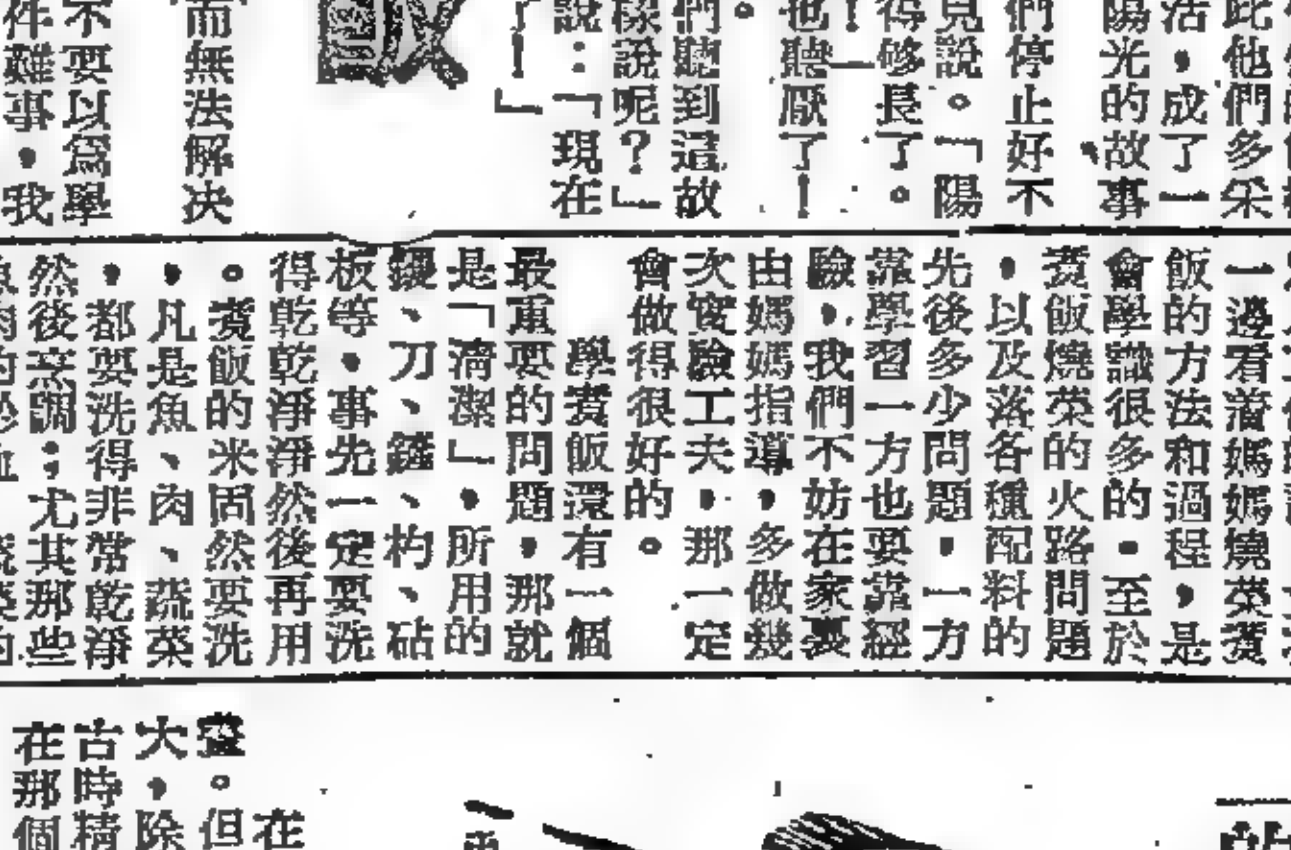 此他們多采
活，成了一
陽光的故事
們停止好不
見說。「陽
得够長了。
！」
也聽厭了！
。
們聽到這故
樣說呢？」
說：「現在
了！」
飯
而無法解决
不要以爲學
件難事，我
一邊看着媽媽燒菜煮
飯的方法和過程，是
會學識很多的。至於
煮飯燒菜的火路問題
，以及落各種配料的
先後多少問題，一方
靠學習一方也要靠經
驗，我們不妨在家裏
由媽媽指導，多做幾
次實驗工夫，那一定
會做得很好的。
學煮飯還有一個
最重要的問題，那就
是「清潔」，所用的
鑊、刀、鏟、杓、砧
板等，事先一定要洗
得乾乾淨淨然後再用
。煮飯的米固然要洗
，凡是魚、肉、蔬菜
，都要洗得非常乾淨
然後烹調；尤其那些
在
。但
大，除
古時精
在那個